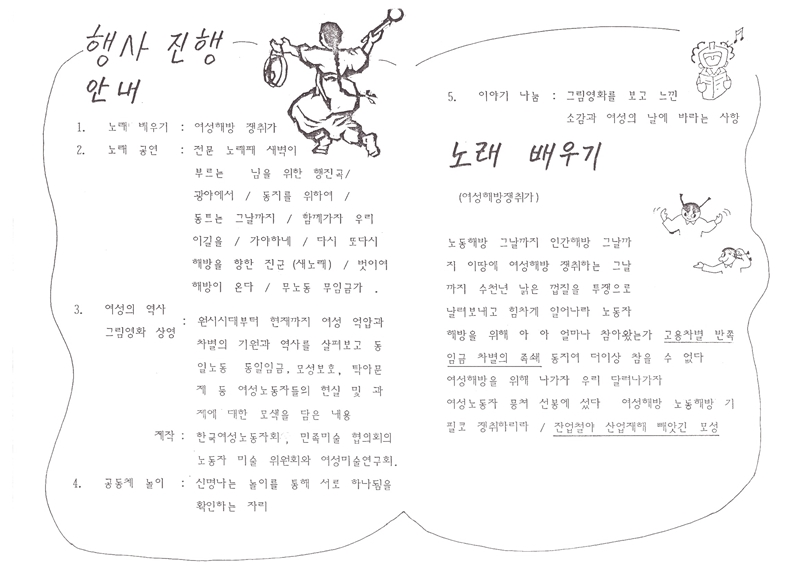 행사 진행
안내
1. 노래 배우기 : 여성해방 쟁취가
2. 노래 공연 : 전문 노래패 새벽이
부르는 님을 위한 행진곡/
광야에서 / 동지를 위하여 /
동트는 그날까지 / 함께가자 우리
이길을 / 가야하네 / 다시 또다시
해방을 향한 진군 (새노래) / 벗이여
해방이 온다 / 무노동 무임금가 .
3. 여성의 역사
그림영화 상영 : 원시시대부터 현재까지 여성 억압과
차별의 기원과 역사를 살펴보고 동
일노동 동일임금, 모성보호, 탁아문
제 등 여성노동자들의 현실 및 과
제에 대한 모색을 담은 내용
제작 : 한국여성노동자회 , 민족미술 협의회의
노동자 미술 위원회와 여성미술연구회.
4. 공동체 놀이 : 신명나는 놀이를 통해 서로 하나됨을
확인하는 자리
5. 이야기 나눔 : 그림영화를 보고 느낀
소감과 여성의 날에 바라는 사항
노래 배우기
(여성해방쟁취가)
노동해방 그날까지 인간해방 그날까
지 이땅에 여성해방 쟁취하는 그날
까지 수천년 낡은 껍질을 투쟁으로
날려보내고 힘차게 일어나라 노동자
해방을 위해 아 아 얼마나 참아왔는가 고용차별 반쪽
임금 차별의 족쇄 동지여 더이상 참을 수 없다
여성해방을 위해 나가자 우리 달려나가자
여성노동자 뭉쳐 선봉에 섰다 여성해방 노동해방 기
필코 쟁취하리라 / 잔업철야 산업재해 빼앗긴 모성